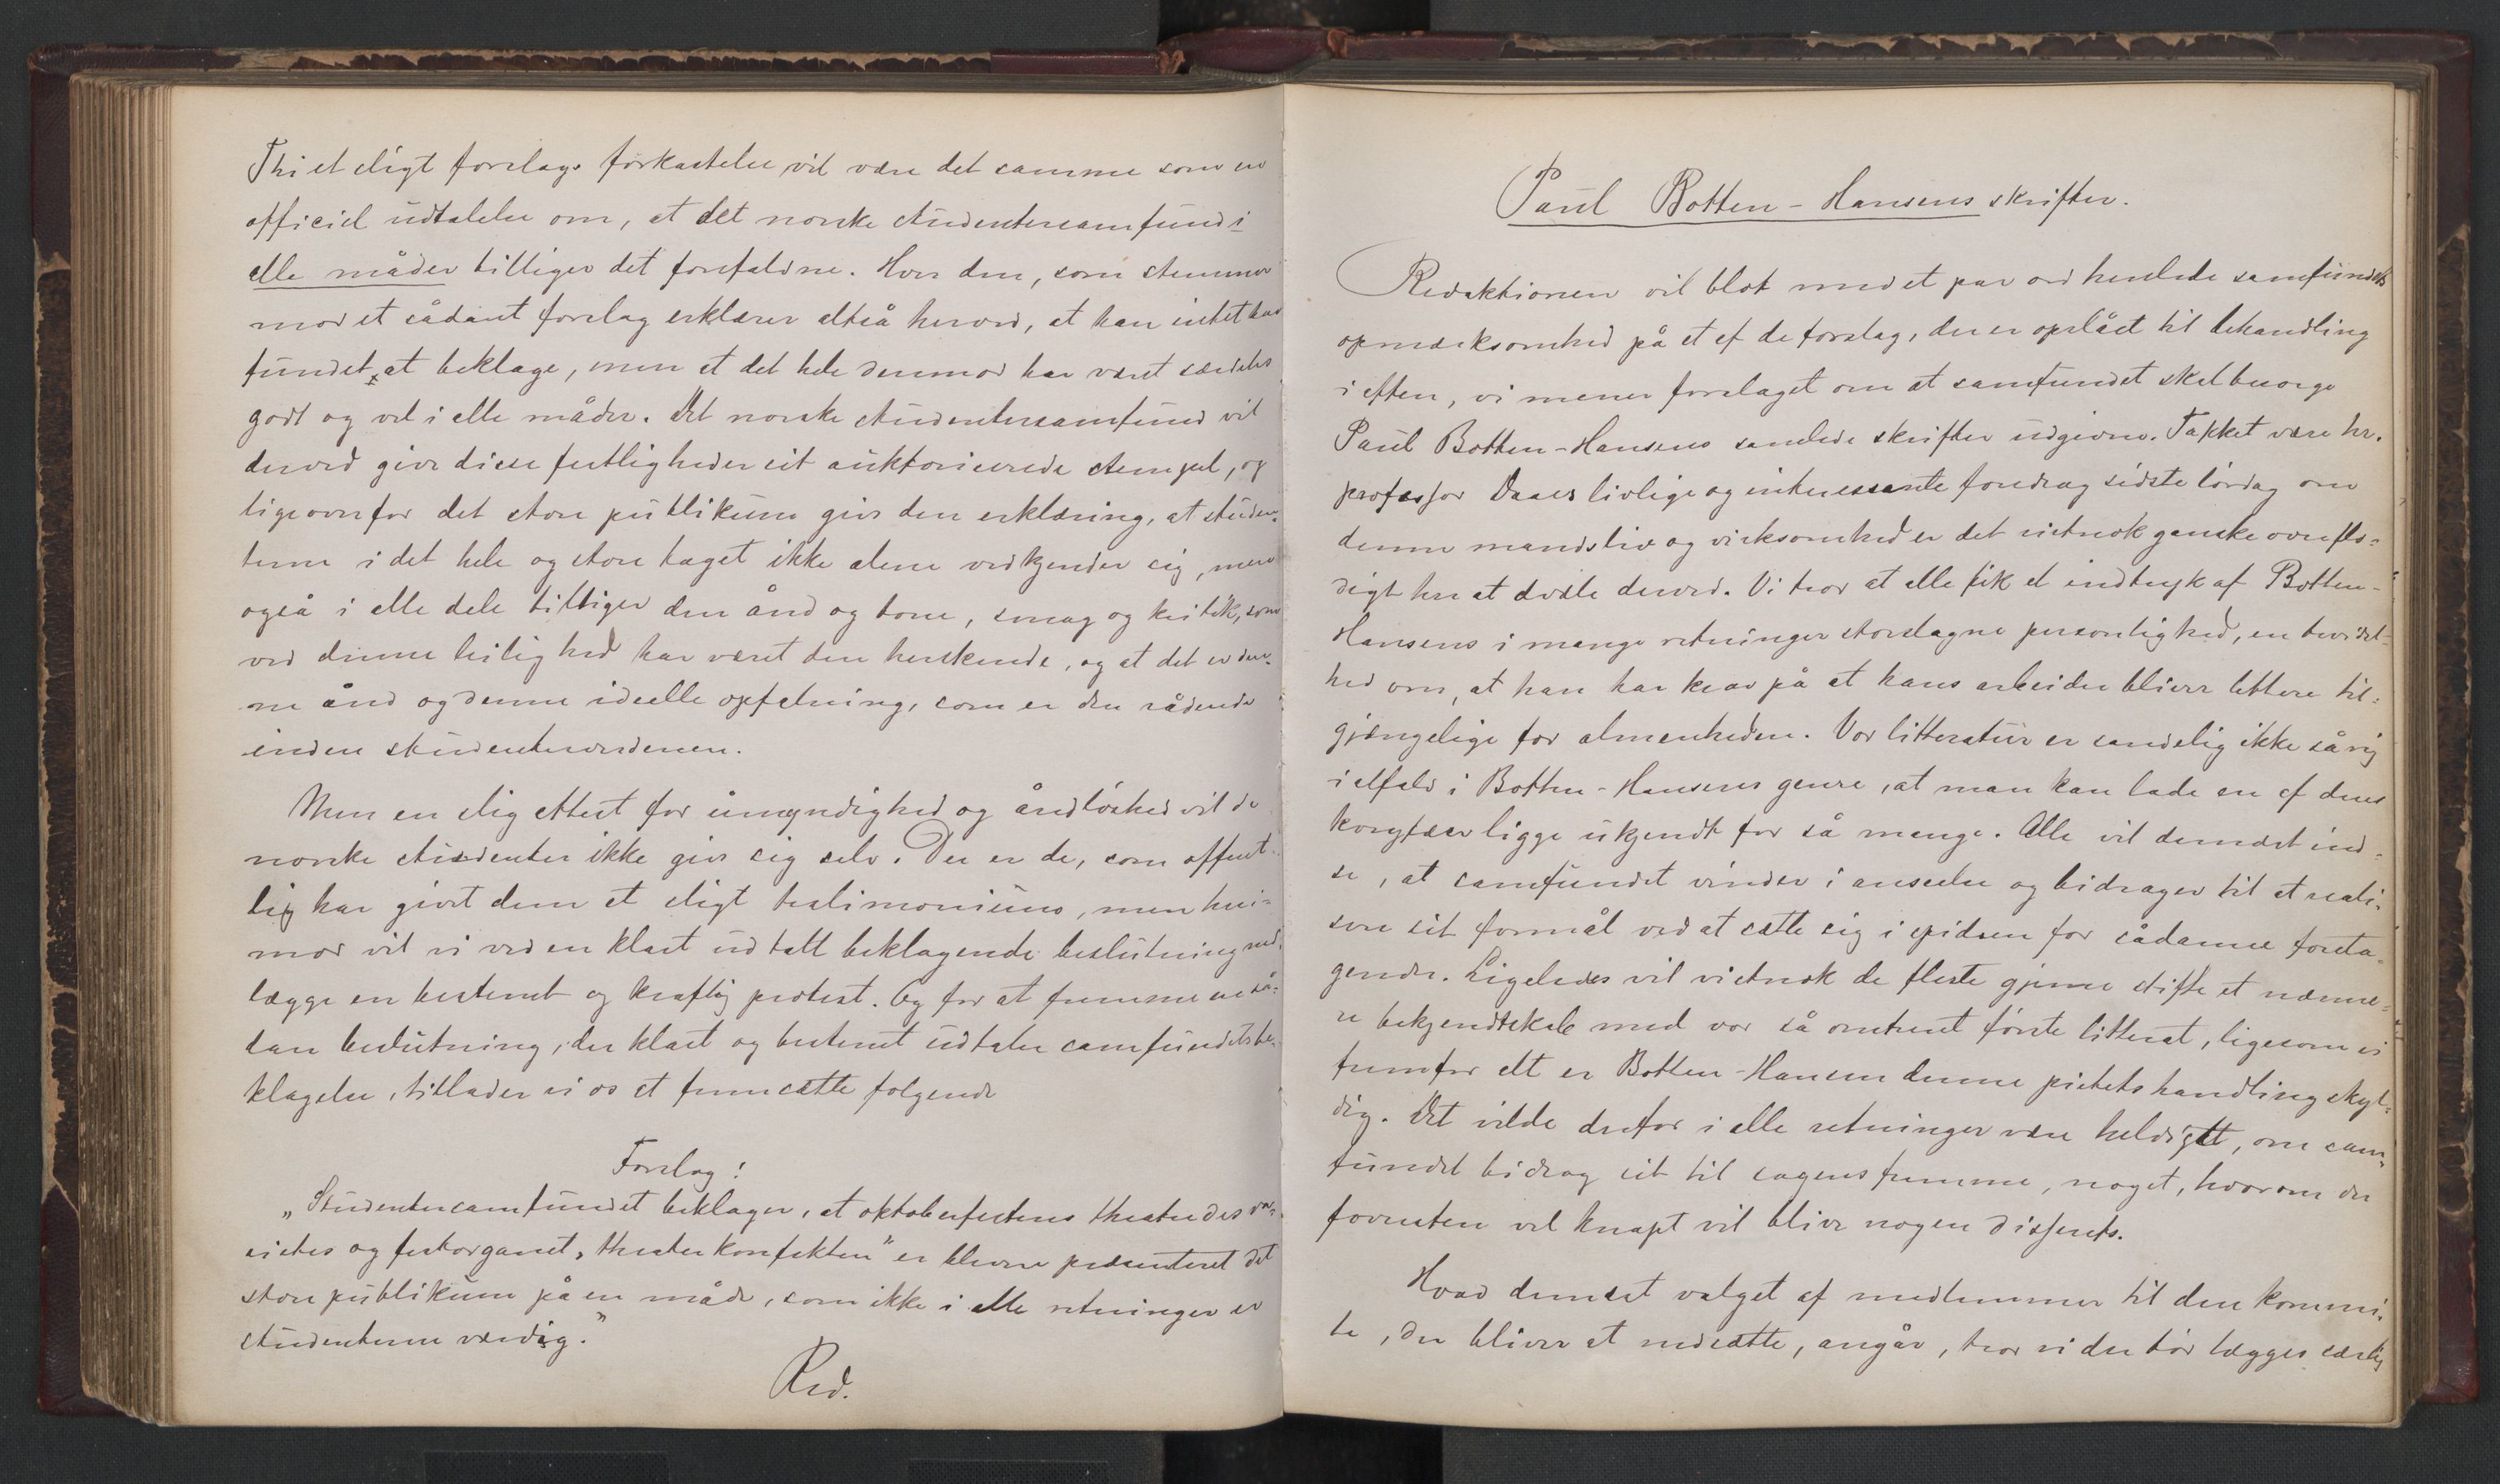 Thi et sligt forslags forkastelse vil være det samme som en
officiel udtalelse om, at det norske studentersamfund i
alle måder billiger det forefaldne. Hver den, som stemmer
mod et sådant forslag erklærer altså herved, at han intet har
fundet at beklage, men at det hele derimod har været særdeles
godt og vel i alle måder. Det norske studentersamfund vil
derved give disse festligheder sit auktoriserede stempel, og
ligeoverfor det store publikum give den erklæring, at studen-
terne i det hele og store taget ikke alene vedkjender sig, men
også i alle dele billiger den ånd og tone, smag og kritik, som
ved denne leilighed har været den herskende, og at det er den-
ne ånd og denne ideelle opfatning, som er den rådende
inden studenterverdenen.
Men en slig attest for umyndighed og åndløshed vil de
norske studenter ikke give sig selv. Der er de, som offent-
lig har givet dem et sligt testimonium, men heri-
mod vil vi ved en klart udtalt beklagende beslutning ned-
lægge en bestemt og kraftig protest. Og for at fremme en så-
dan beslutning, der klart og bestemt udtaler samfundets be-
klagelse, tillader vi os at fremsætte følgende
Forslag:
„Studentersamfundet beklager, at oktoberfestens theatre des va-
rietes og festorganet „theaterkonfekten" er blevne præsenteret det
store publikum på en måde, som ikke i alle retninger er
studenterne værdig."
Red.
Paul Botten-Hansens skrifter.
Redaktionen vil blot med et par ord henlede samfundets
opmærksomhed på et af de forslag, der er opslået til behandling
i aften, vi mener forslaget om at samfundet skal besørge
Paul Botten-Hansens samlede skrifter udgivne. Takket være hr.
professor Daaes livlige og interessante foredrag sidste lørdag om
denne mands liv og virksomhed er det vistnok ganske overflø-
digt her at dvæle derved. Vi tror at alle fik et indtryk af Botten-
Hansens i mange retninger storslagne personlighed, en bevidst-
hed om, at han har krav på at hans arbeider bliver lettere til-
gjængelige for almenheden. Vor litteratur er sandelig ikke så rig
i alfald i Botten-Hansens genre, at man kan lade en af dens
koryfæer ligge ukjendt for så mange. Alle vil dernæst ind-
se, at samfundet vinder i anseelse og bidrager til at reali-
sere sit formål ved at sætte sig i spidsen for sådanne foreta-
gender. Ligeledes vil vistnok de fleste gjerne stifte et nærme-
re bekjendtskab med vor så omtrent første litterat, ligesom vi
fremfor alt er Botten-Hansen denne pietetshandling skyl-
dig. Det vilde derfor i alle retninger være heldigst, om sam-
fundet bidrog sit til sagens fremme, noget, hvorom der
forresten vel knapt vil blive nogen dissents.
Hvad dernæst valget af medlemmer til den kommi-
te, der bliver at nedsætte, angår, tror vi der bør lægges særlig